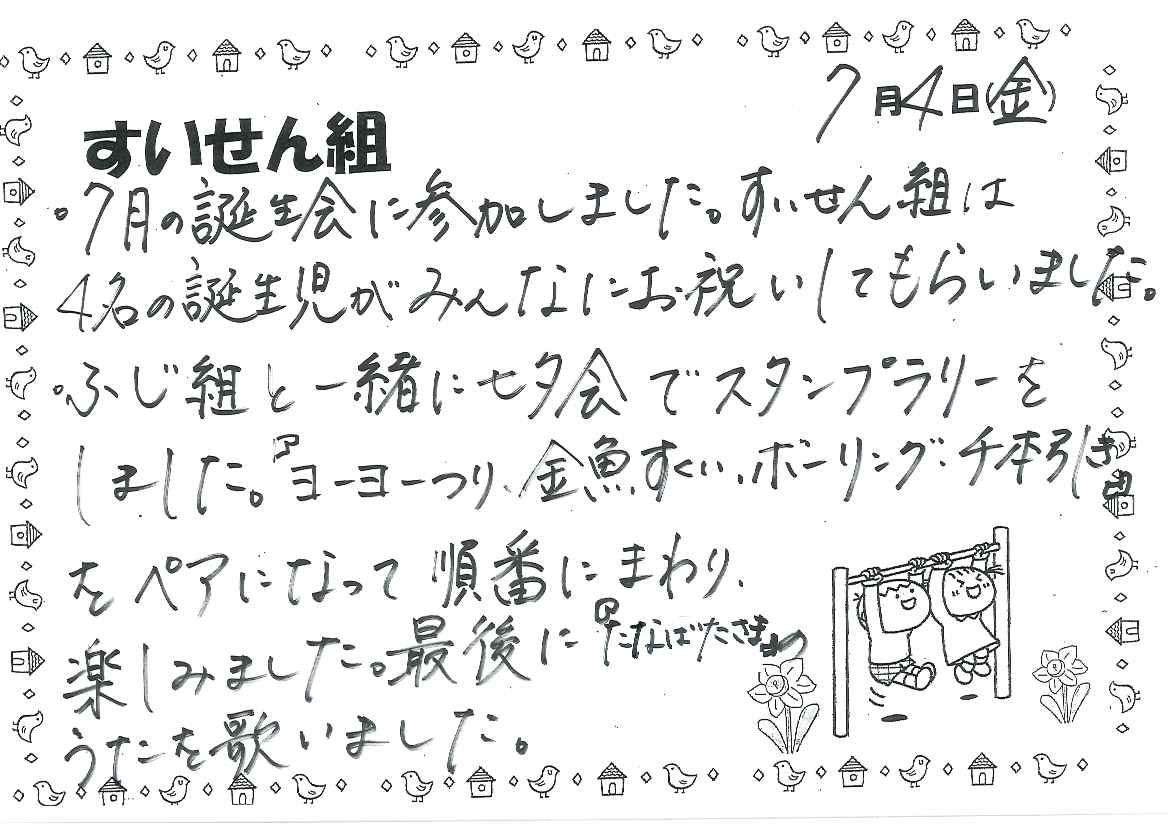 7月4日(金)
すいせん組
。7月の誕生会に参加しました。すいせん組は
4名の誕生児がみんなにお祝いしてもらいました。
。ふじ組と一緒に七夕会でスタンプラリーを
しました。『ヨーヨーつり、金魚すくい、ボーリング、千本引き』
をペアになって順番にまわり、
楽しみました。最後に『たなばたさま』の
うたを歌いました。